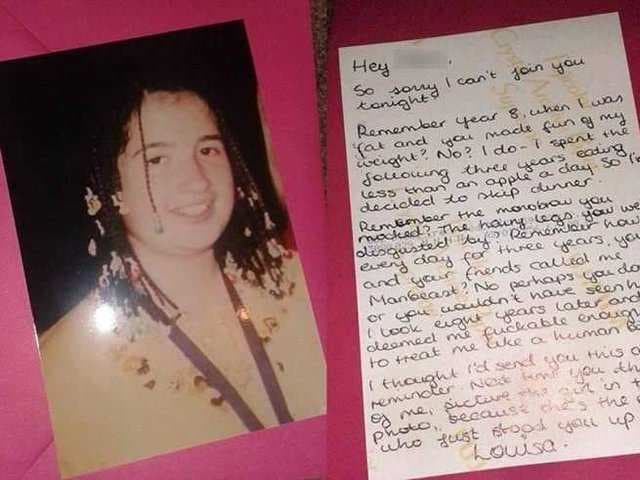 Hey
So sorry I can't join you
tonight.
Remember year 8, when I was
fat and you made fun of my
weight? No? I do - I spent the
following three years eating
less than an apple a day. So I
decided to skip dinner.
Remember the monobrow you
mocked? The hairy legs you we
disgusted by? Remember how
every day for three years, yo
and your friends called me
Manbeast? No perhaps you do
or you wouldn't have seen h
I look eight years later and
deemed me fuckable enough
to treat me like a human
I thought I'd send you this
reminder. Next time you th
of me, picture the girl in
photo, because she's the
who just stood you up.
Louisa.